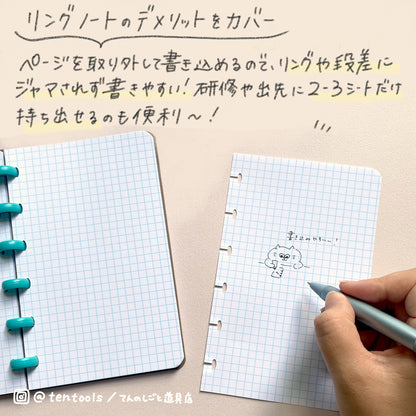 リングノートのデメリットをカバー
ページを取り外して書き込めるので、リングや段差に
ジャマされず書きやすい！研修や出先に2-3シートだけ
持ち出せるのも便利～！
書き込みやすい～！
@tentools／てんのしごと道具店